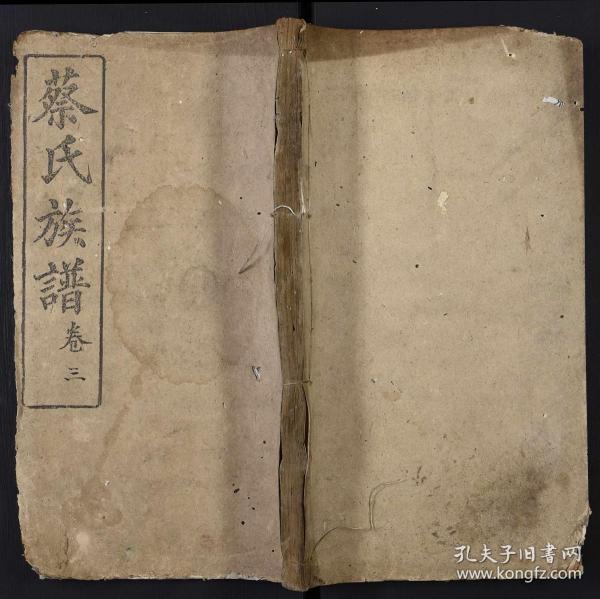 蔡氏族譜
卷三
孔夫子旧書网
www.kongfz.com